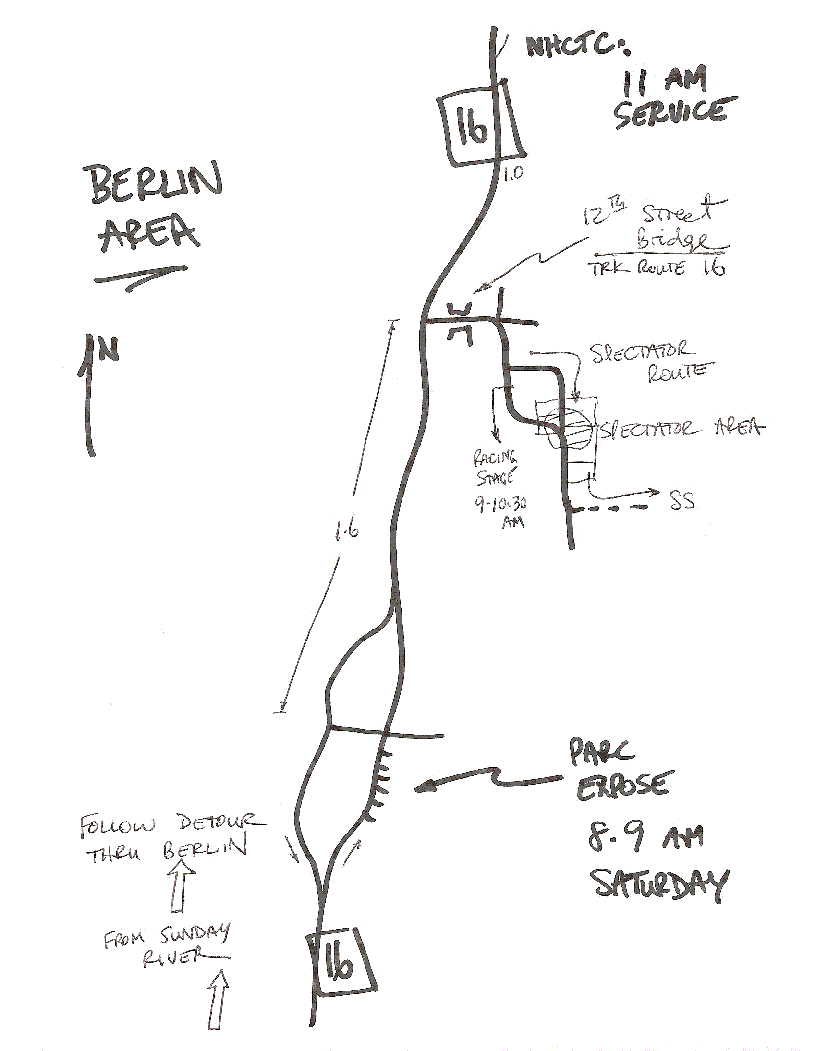 NHCTC:
11 AM
SERVICE
16
1.0
BERLIN
AREA
12TH Street
Bridge
TRK ROUTE 16
N
SPECTATOR
ROUTE
SPECTATOR AREA
RACING
STAGE
9-10:30
AM
SS
1.6
PARC
EXPOSE
8-9 AM
SATURDAY
FOLLOW DETOUR
THRU BERLIN
FROM SUNDAY
RIVER
16